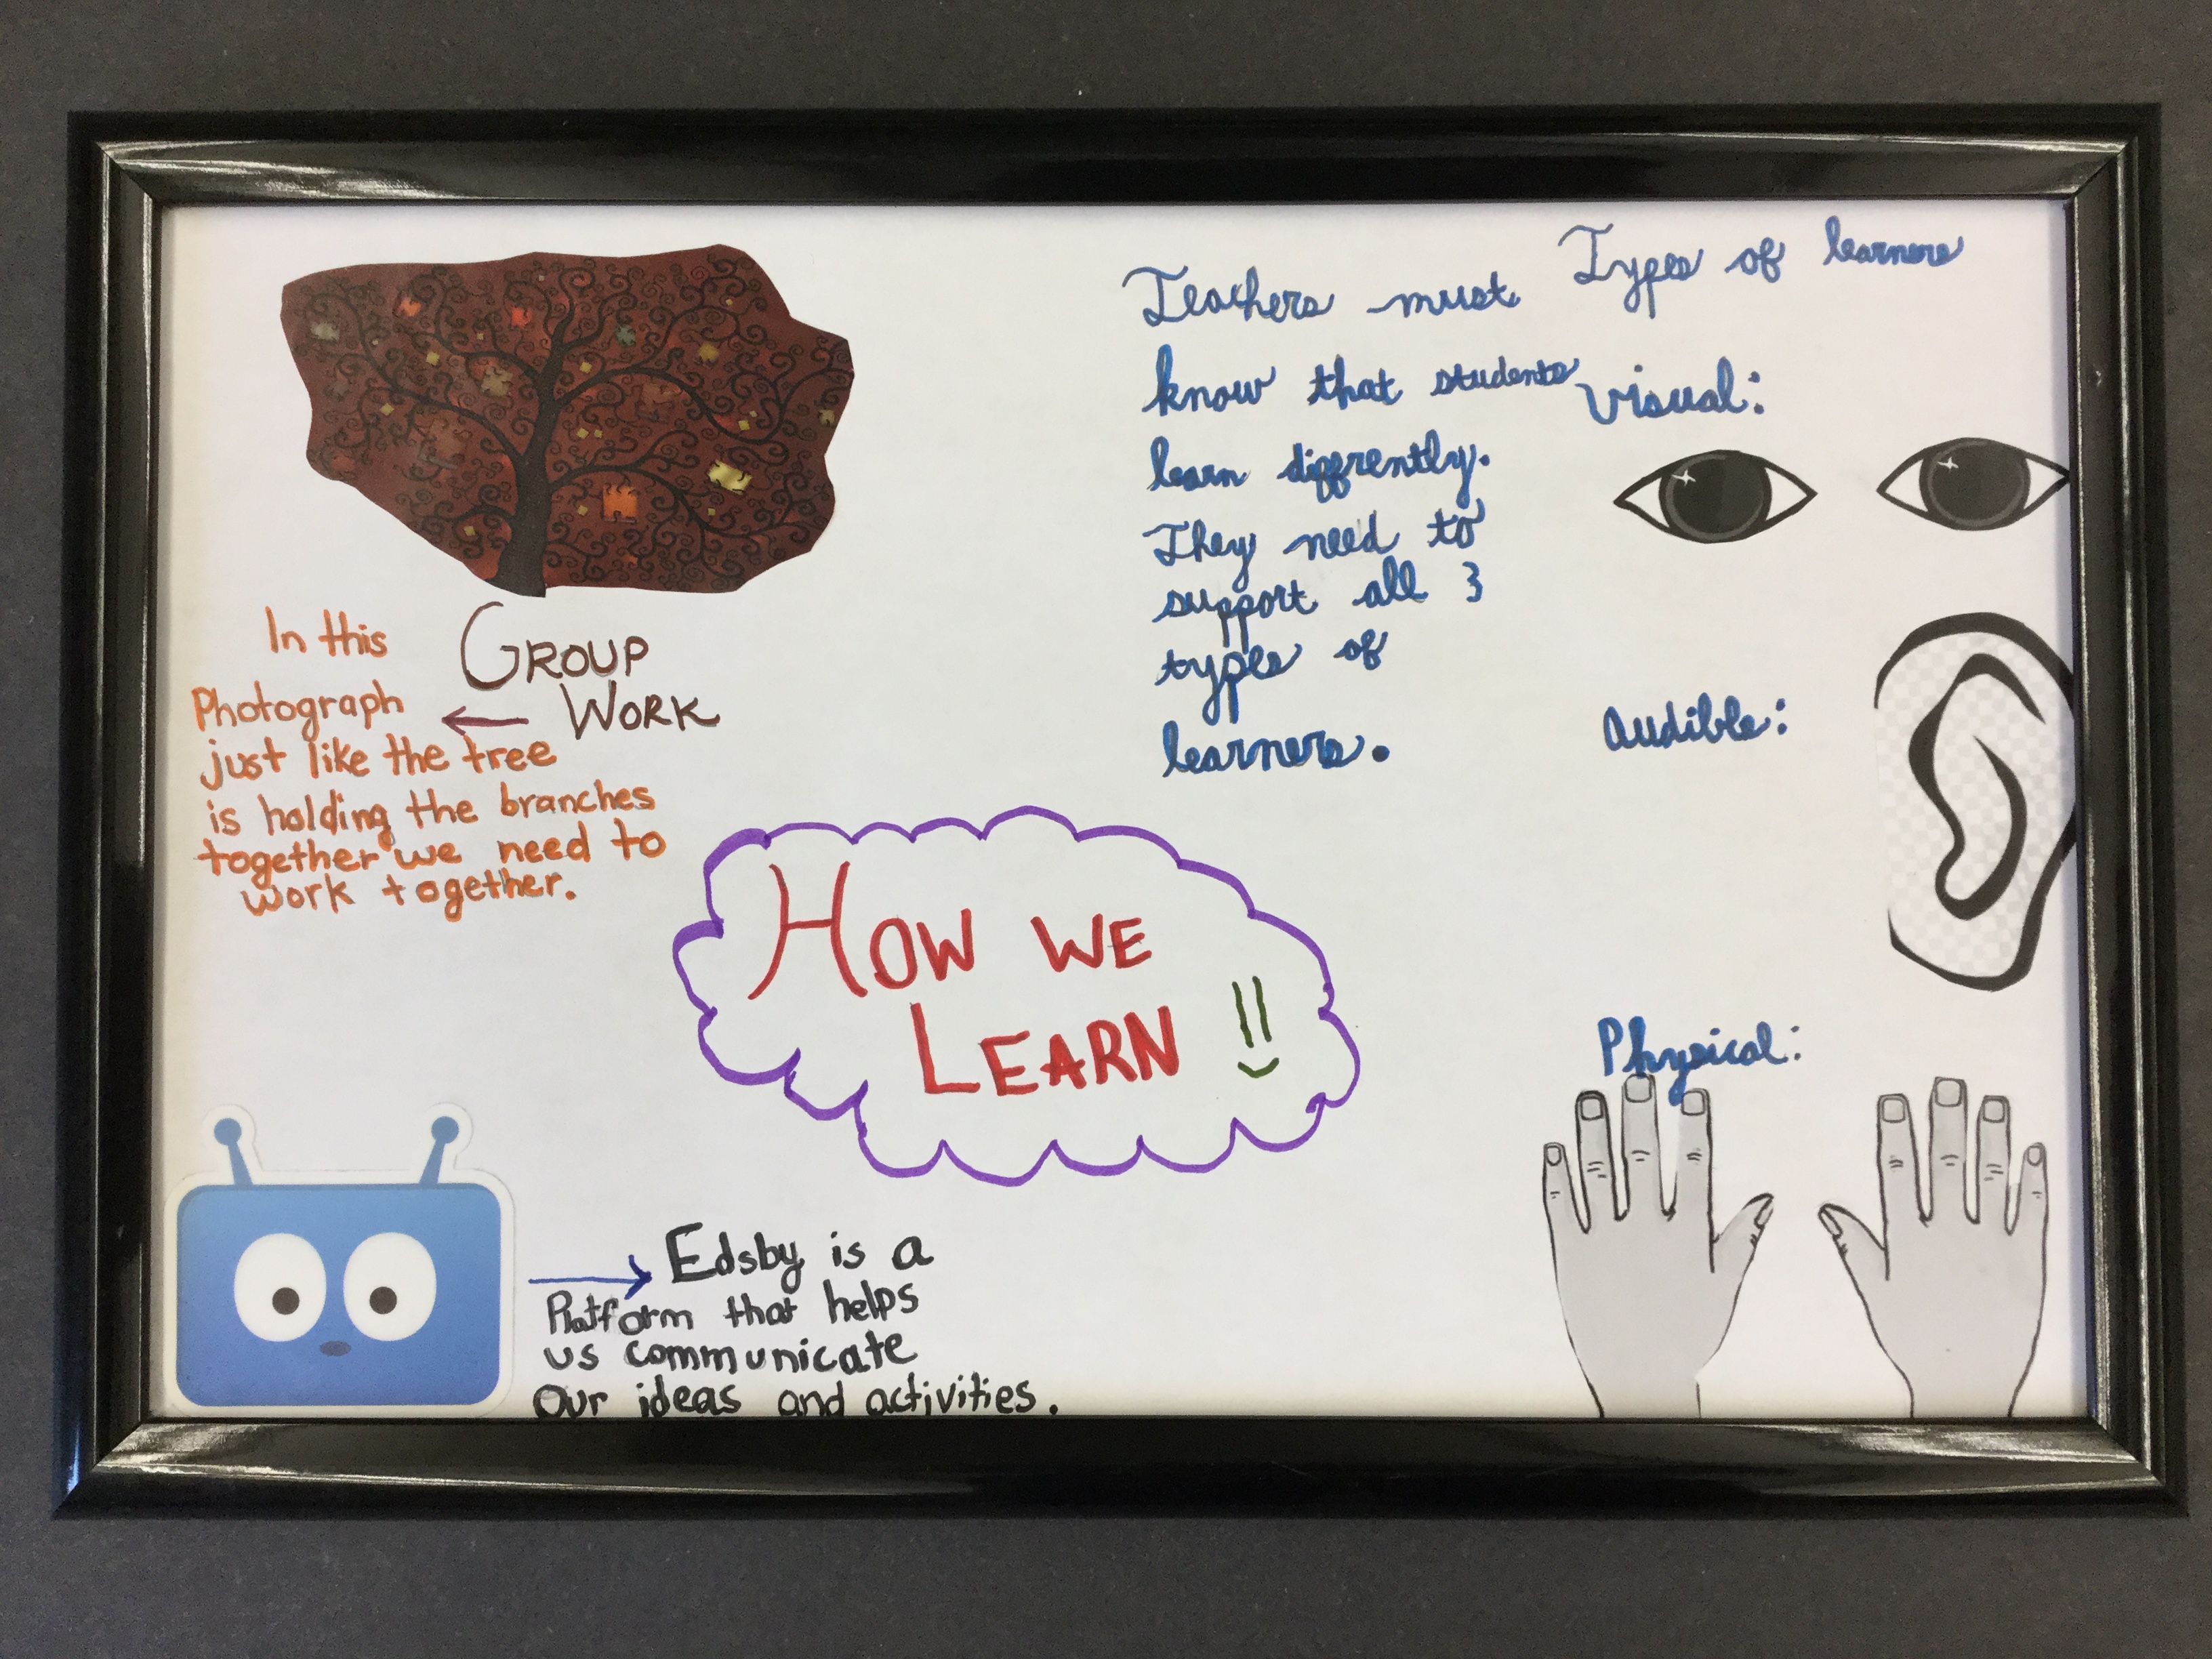 GROUP
WORK
In this
Photograph
just like the tree
is holding the branches
together we need to
work together.
Teachers must
know that students
learn diffrently.
They need to
support all 3
types of
learners.
Types of learners
visual:
Audible:
Physical:
HOW WE
LEARN !!
Edsby is a
Platform that helps
us communicate
our ideas and activities.